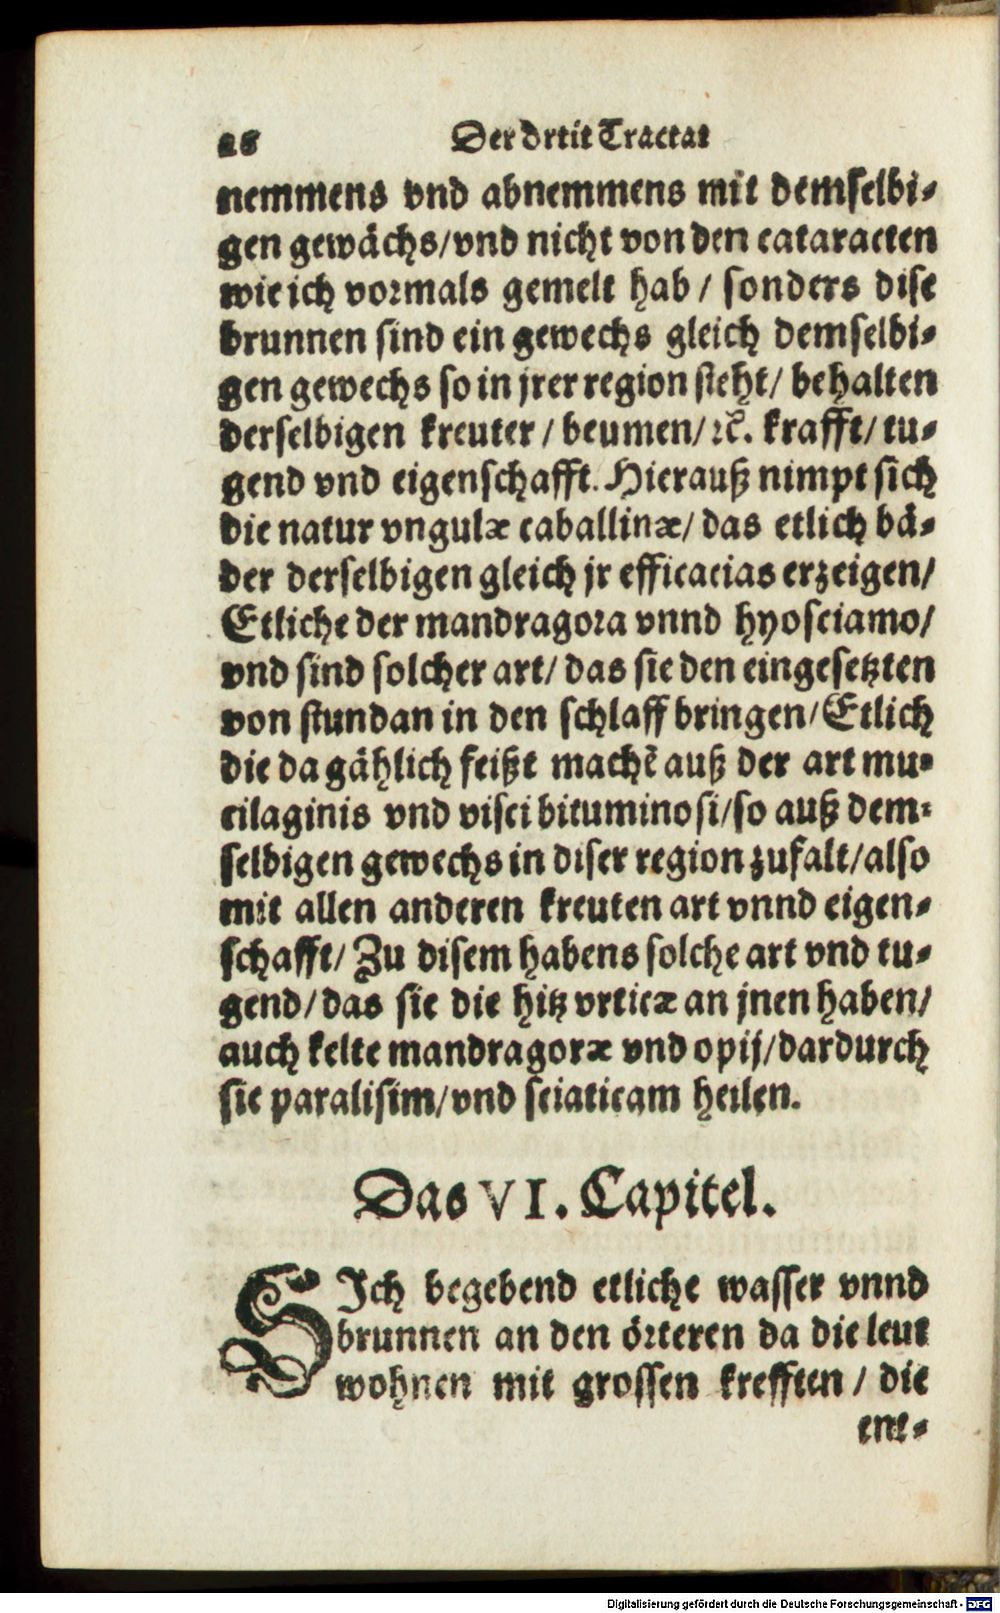 26 Der drtit Tractat
nemmens vnd abnemmens mit demselbi-
gen gewächs/vnd nicht von den cataracten
wie ich vormals gemelt hab / sonders dise
brunnen sind ein gewechs gleich demselbi-
gen gewechs so in jrer region steht/ behalten
derselbigen kreuter / beumen/ ꝛc̃. krafft/ tu-
gend vnd eigenschafft. Hierauß nimpt sich
die natur vngulæ caballinæ/ das etlich bä-
der derselbigen gleich jr efficacias erzeigen/
Etliche der mandragora vnnd hyosciamo/
vnd sind solcher art/ das sie den eingesetzten
von stundan in den schlaff bringen/Etlich
die da gählich feißt machẽ auß der art mu-
cilaginis vnd visci bituminosi/so auß dem-
selbigen gewechs in diser region zufalt/also
mit allen anderen kreuten art vnnd eigen-
schafft/ Zu disem habens solche art vnd tu-
gend/das sie die hitz vrticæ an jnen haben/
auch kelte mandragoræ vnd opij/dardurch
sie paralisim/vnd sciaticam heilen.
Das VI. Capitel.
SIch begebend etliche wasser vnnd
brunnen an den örteren da die leut
wohnen mit grossen krefften / die
ent-
Digitalisierung gefördert durch die Deutsche Forschungsgemeinschaft - DFG